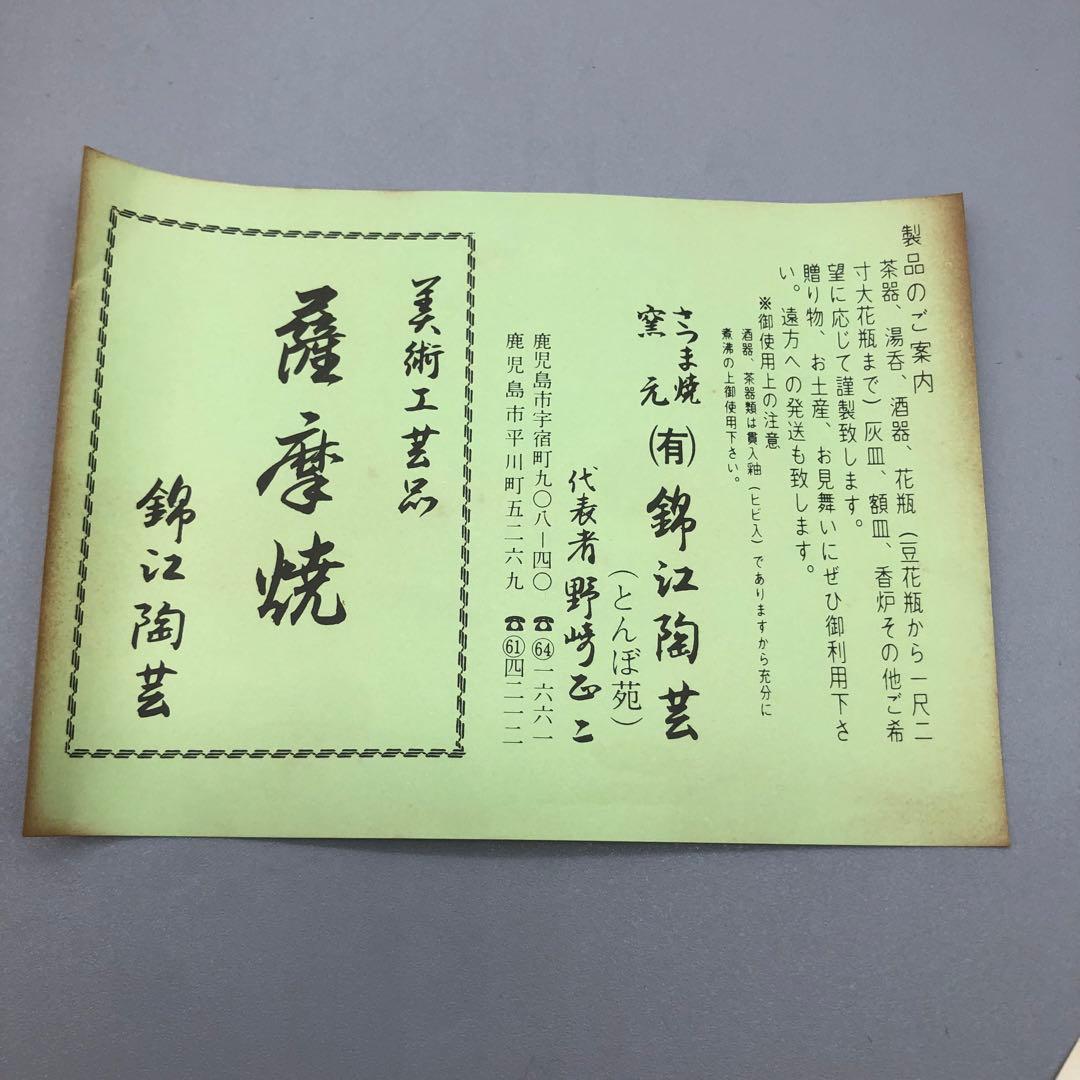 製品のご案内
茶器、湯呑、酒器、花瓶(豆花瓶から一尺二
寸大花瓶まで)灰皿、額皿、香炉その他ご希
望に応じて謹製致します。
贈り物、お土産、お見舞いにぜひ御利用下さ
い。遠方への発送も致します。
※御使用上の注意
酒器、茶器類は貫入釉(ヒビ入)でありますから充分に
煮沸の上御使用下さい。
さつま焼
窯元
㈲錦江陶芸
(とんぼ苑)
代表者野崎正二
鹿児島市宇宿町九〇八ー四〇 ☎64一六六一
鹿児島市平川町五二六九 ☎61四二一二
美術工芸品
薩摩焼
錦江陶芸